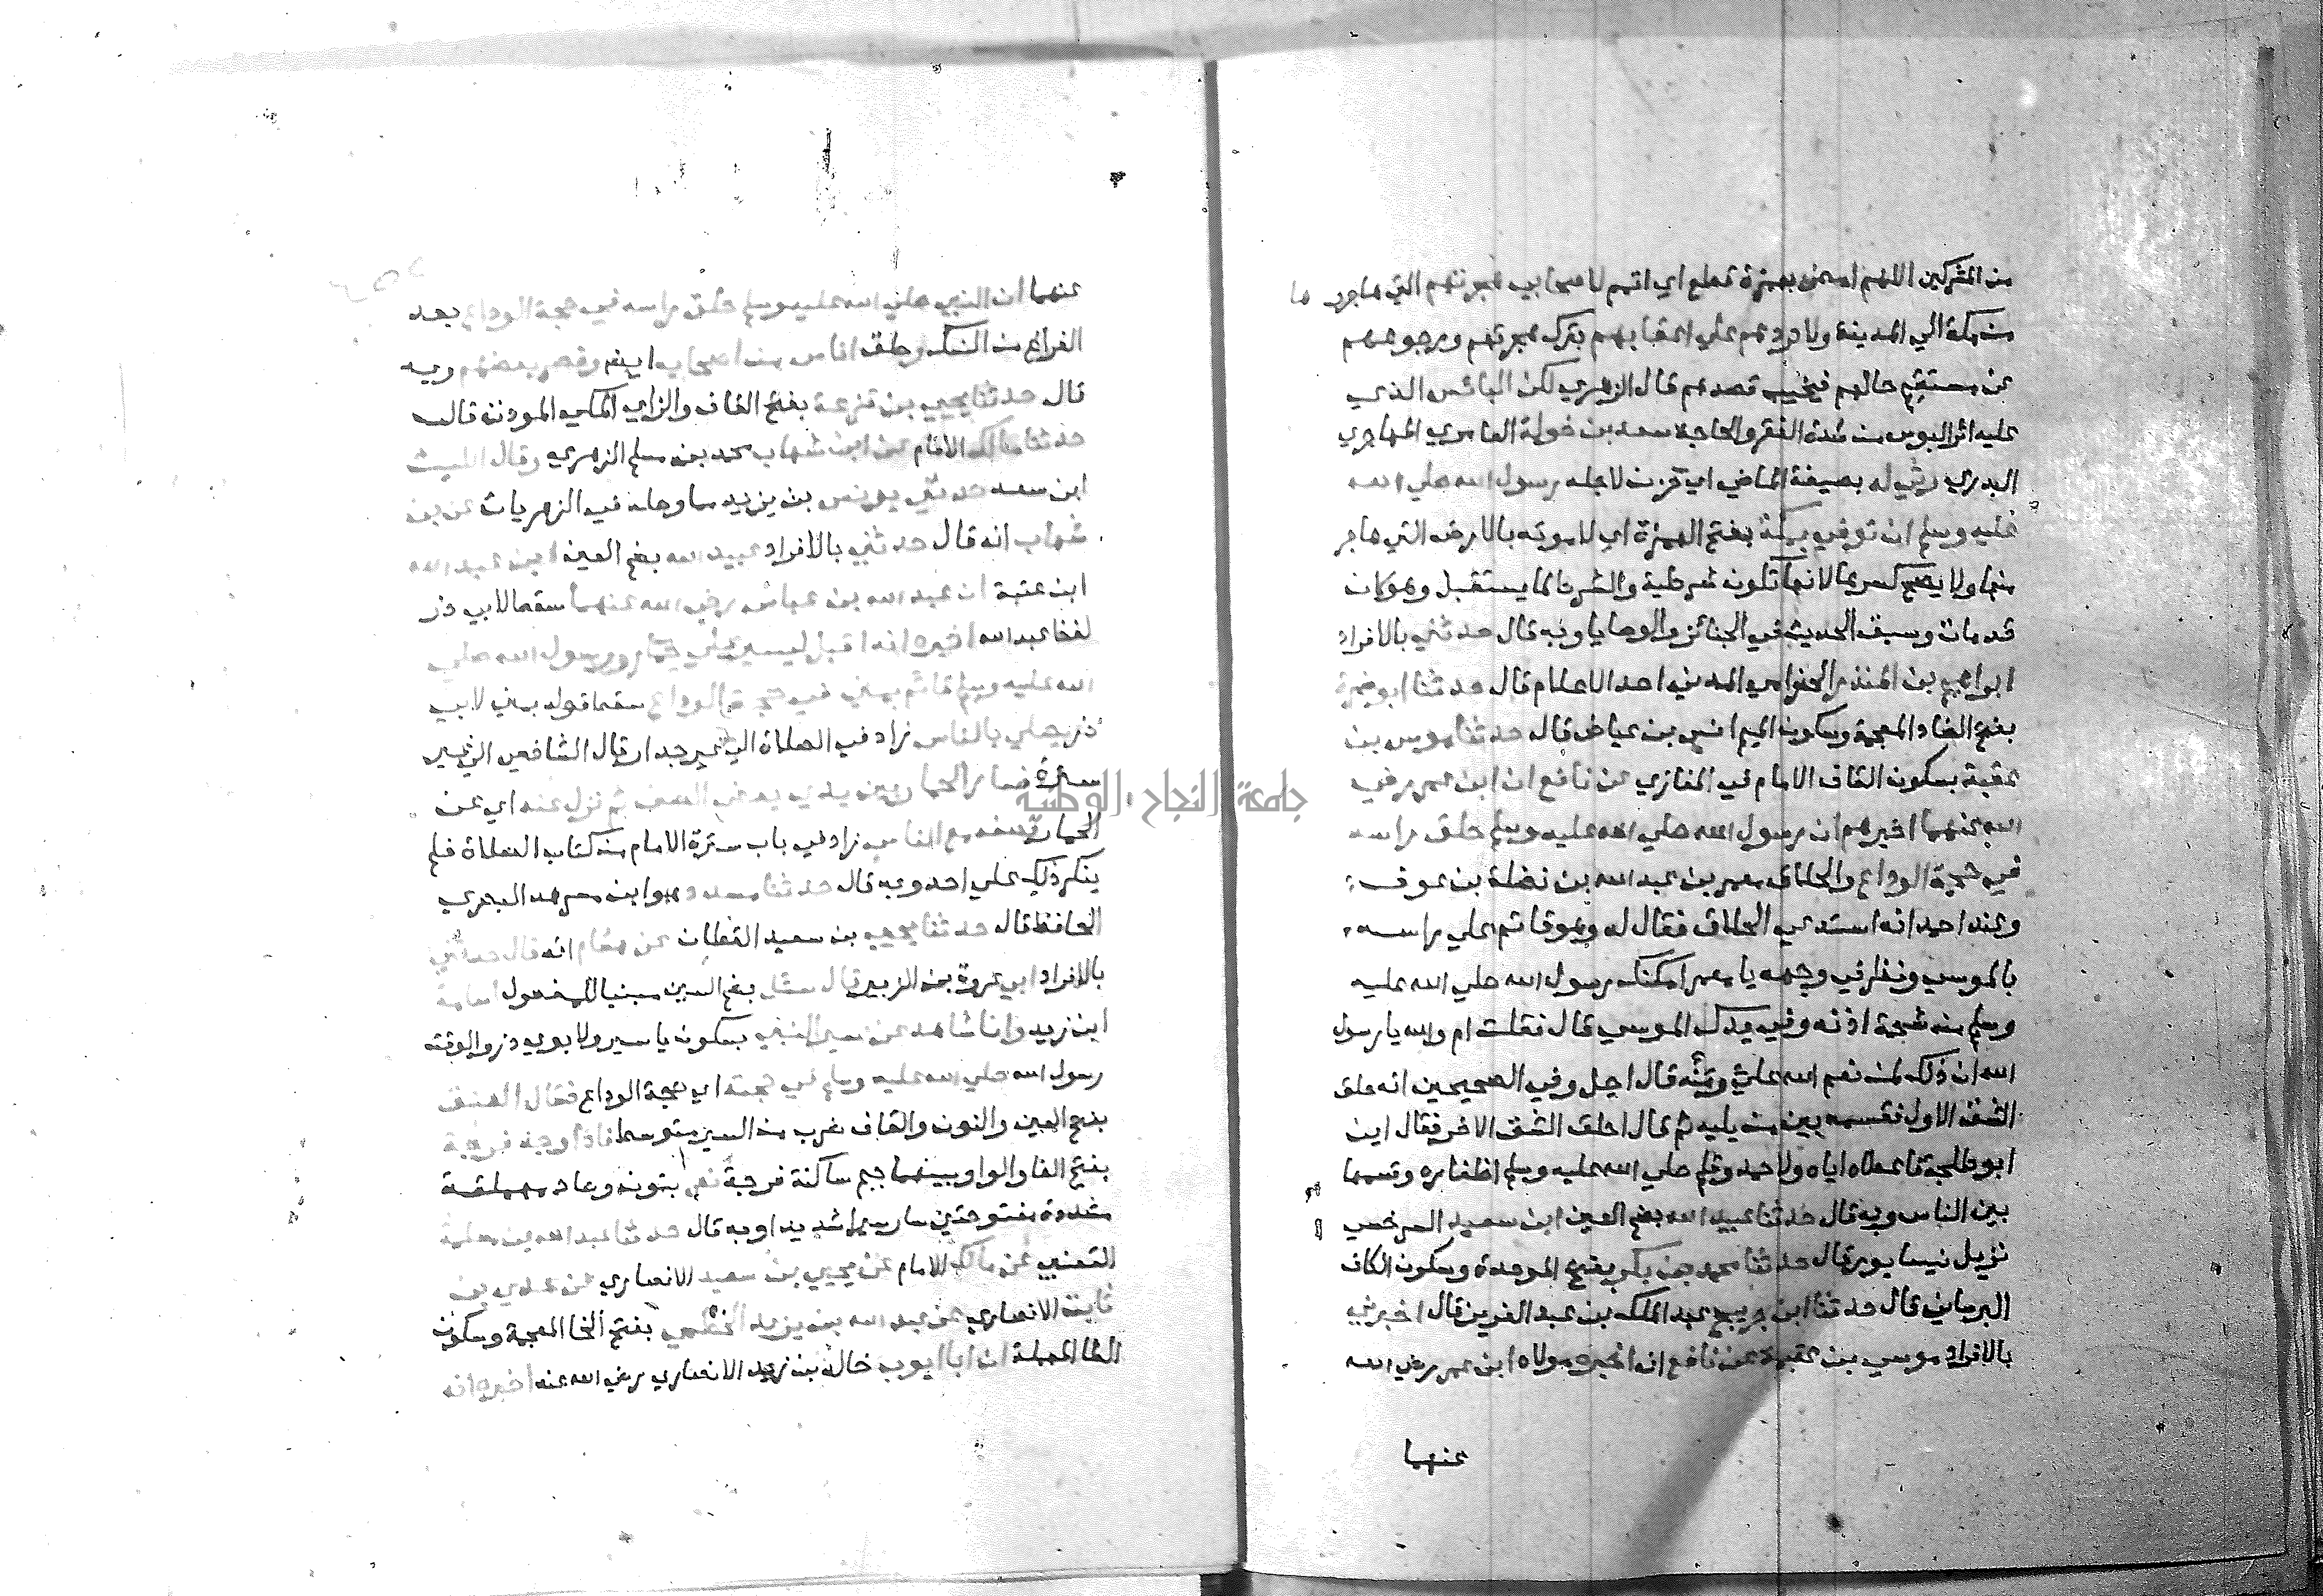 من المشركين اللهم امض بهمزة قطع اي اتمم لاصحابي هجرتهم التي هاجروها
من مكة الي المدينة ولا تردهم علي اعقابهم بترك هجرتهم ورجوعهم
عن مستقيم حالهم فيخيب قصدهم قال الزهري لكن البائس الذي
عليه اثر البوس من شدة الفقر والحاجة سعد بن خولة العامري المهاجري
البدري رثي له بصيغة الماضي اي حزن لاجله رسول الله صلي الله
عليه وسلم ان توفي بمكة بفتح الهمزة اي لاموته بالارض التي هاجر
منها ولا يصح كسرها لانها تكون شرطية والشرط لما يستقبل وهو كان
قد مات وسبق الحديث في الجنائز والوصايا وبه قال حدثني بالافراد
ابراهيم بن المنذر الحزامي المدني احد الاعلام قال حدثنا ابو ضمرة
بفتح الضاد المعجمة وسكون الميم انس بن عياض قال حدثنا موسي بن
عقبة بسكون القاف الامام في المغازي عن نافع ان ابن عمر رضي
الله عنهما اخبرهم ان رسول الله صلي الله عليه وسلم حلق راسه
في حجة الوداع والحلاق معمر بن عبد الله بن نضلة بن عوف
وعند احمد انه استدعي الحلاق فقال له وهو قائم علي راسه
بالموسي ونظر في وجهه يا معمر امكنك رسول الله صلي الله عليه
وسلم من شحمة اذنه وفي يدك الموسي قال فقلت ام والله يا رسول
الله ان ذلك لمن نعم الله علي ومنه قال اجل وفي الصحيحين انه حلق
الشق الاول فقسمه بين من يليه ثم قال احلق الشق الاخر فقال اين
ابو طلحة فاعطاه اياه ولاحمد وقلم صلي الله عليه وسلم اظفاره وقسمها
بين الناس وبه قال حدثنا عبيد الله بضم العين ابن سعيد السرخسي
نزيل نيسابور قال حدثنا محمد بن بكر بفتح الموحدة وسكون الكاف
البرساني قال حدثنا ابن جريج عبد الملك بن عبد العزيز قال اخبرني
بالافراد موسي بن عقبة عن نافع انه اخبره مولاه ابن عمر رضي الله
عنهما
عنهما ان النبي صلي الله عليه وسلم حلق راسه في حجة الوداع بعد
الفراغ من النسك وحلق اناس من اصحابه ايضا وقصر بعضهم وبه
قال حدثنا يحيي بن قزعة بفتح القاف والزاي المكي الموذن قال
حدثنا مالك الامام عن ابن شهاب محمد بن مسلم الزهري وقال الليث
ابن سعد حدثني يونس بن يزيد مما وصله في الزهريات عن بن
شهاب انه قال حدثني بالافراد عبيد الله بضم العين ابن عبد الله
ابن عتبة ان عبد الله بن عباس رضي الله عنهما سقط لابي ذر
لفظ عبد الله اخبره انه اقبل يسير علي حمار ورسول الله صلي
الله عليه وسلم قائم بمني في حجة الوداع سقط قوله بمني لابي
ذر يصلي بالناس زاد في الصلاة الي غير جدار قال الشافعي الي غير
سترة فسار الحمار بين يدي بعض الصف ثم نزل عنه اي عن
الحمار فصف مع الناس زاد في باب سترة الامام من كتاب الصلاة فلم
ينكر ذلك علي احد وبه قال حدثنا مسدد هو ابن مسرهد البصري
الحافظ قال حدثنا يحيي بن سعيد القطان عن هشام انه قال حدثني
بالافراد ابي عروة بن الزبير قال سئل بضم السين مبنيا للمفعول اسامة
ابن زيد وانا شاهد عن سير النبي بسكون يا سير ولابوي ذر والوقت
رسول الله صلي الله عليه وسلم في حجته اي حجة الوداع فقال العنق
بفتح العين والنون والقاف ضرب من السير متوسط فاذا وجد فرجة
بفتح الفا والواو بينهما جيم ساكنة فرجة نص بنون وصاد مهملة
مشددة مفتوحتين سار سيرا شديدا وبه قال حدثنا عبد الله بن مسلمة
القعنبي عن مالك الامام عن يحيي بن سعيد الانصاري عن عدي بن
ثابت الانصاري عن عبد الله بن يزيد الخطمي بفتح الخا المعجمة وسكون
الطا المهملة ان ابا ايوب خالد بن زيد الانصاري رضي الله عنه اخبره انه
جامعة النجاح الوطنية